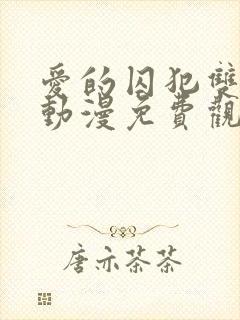 愛的囚犯雙
動漫免費觀
唐亦茶茶